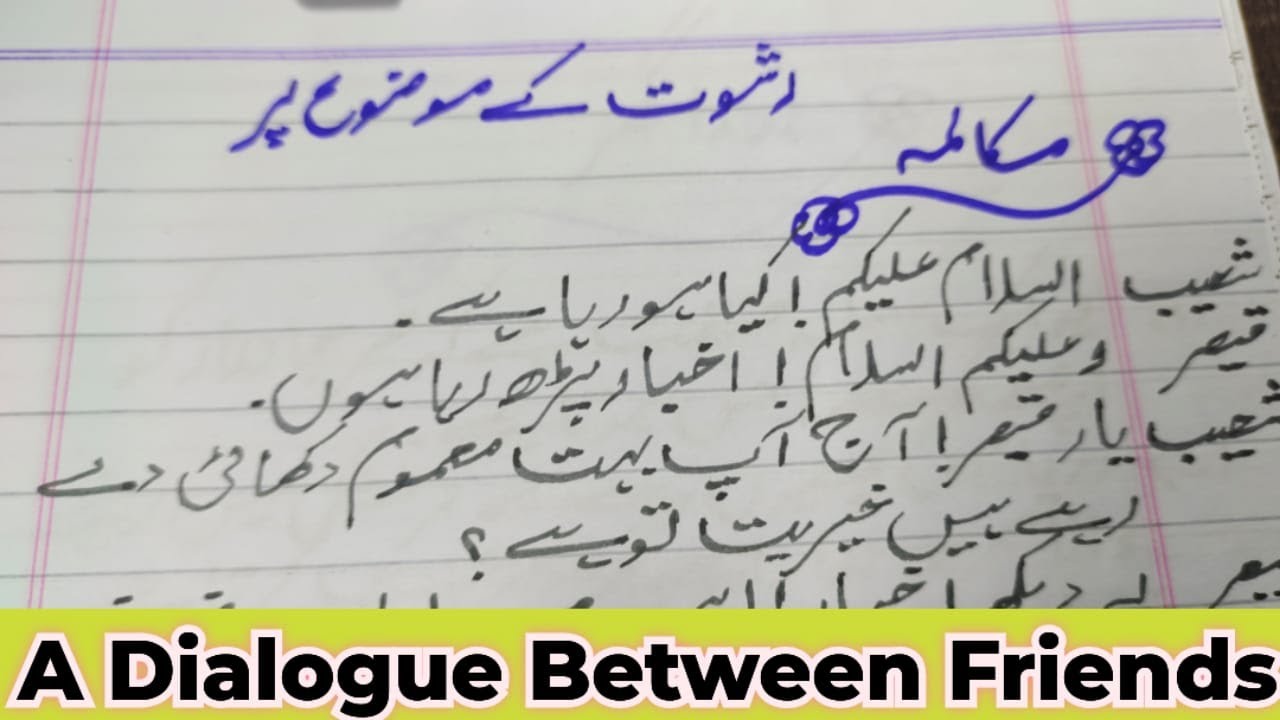 رشوت کے موضوع پر
مکالمہ
شعیب السلام علیکم! کیا ہو رہا ہے۔
قیصر وعلیکم السلام! اخبار پڑھ رہا ہوں۔
شعیب یار قیصر! آج آپ بہت مغموم دکھائی دے
رہے ہیں خیریت تو ہے؟
A Dialogue Between Friends